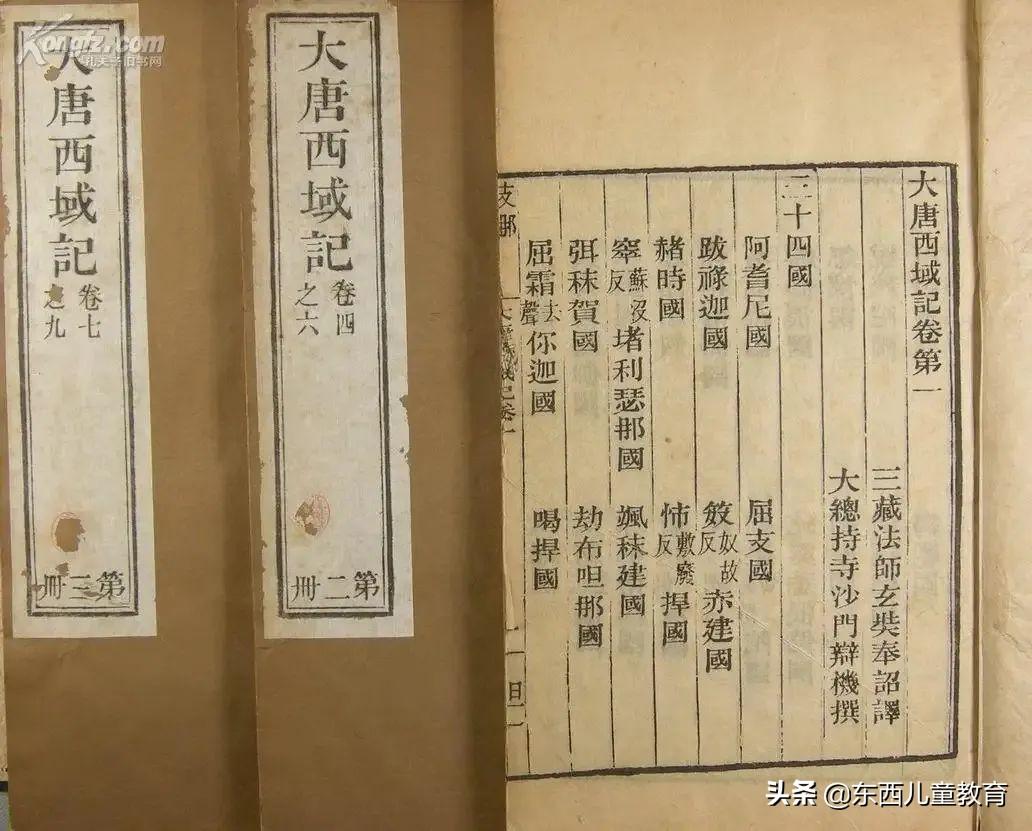 Kongfz.com
孔夫子旧书网
大唐西域記
卷七
之九
第三冊
大唐西域記
卷四
之六
第二冊
大唐西域記卷第一
三藏法師玄奘奉詔譯
大總持寺沙門辯機撰
三十四國
阿耆尼國 屈支國
跋祿迦國 笯奴故反赤建國
赭時國 㤄敷廢反捍國
窣蘇沒反堵利瑟那國 颯秣建國
弭秣賀國 劫布呾那國
屈霜去聲你迦國 喝捍國
支那
头条 @东西儿童教育